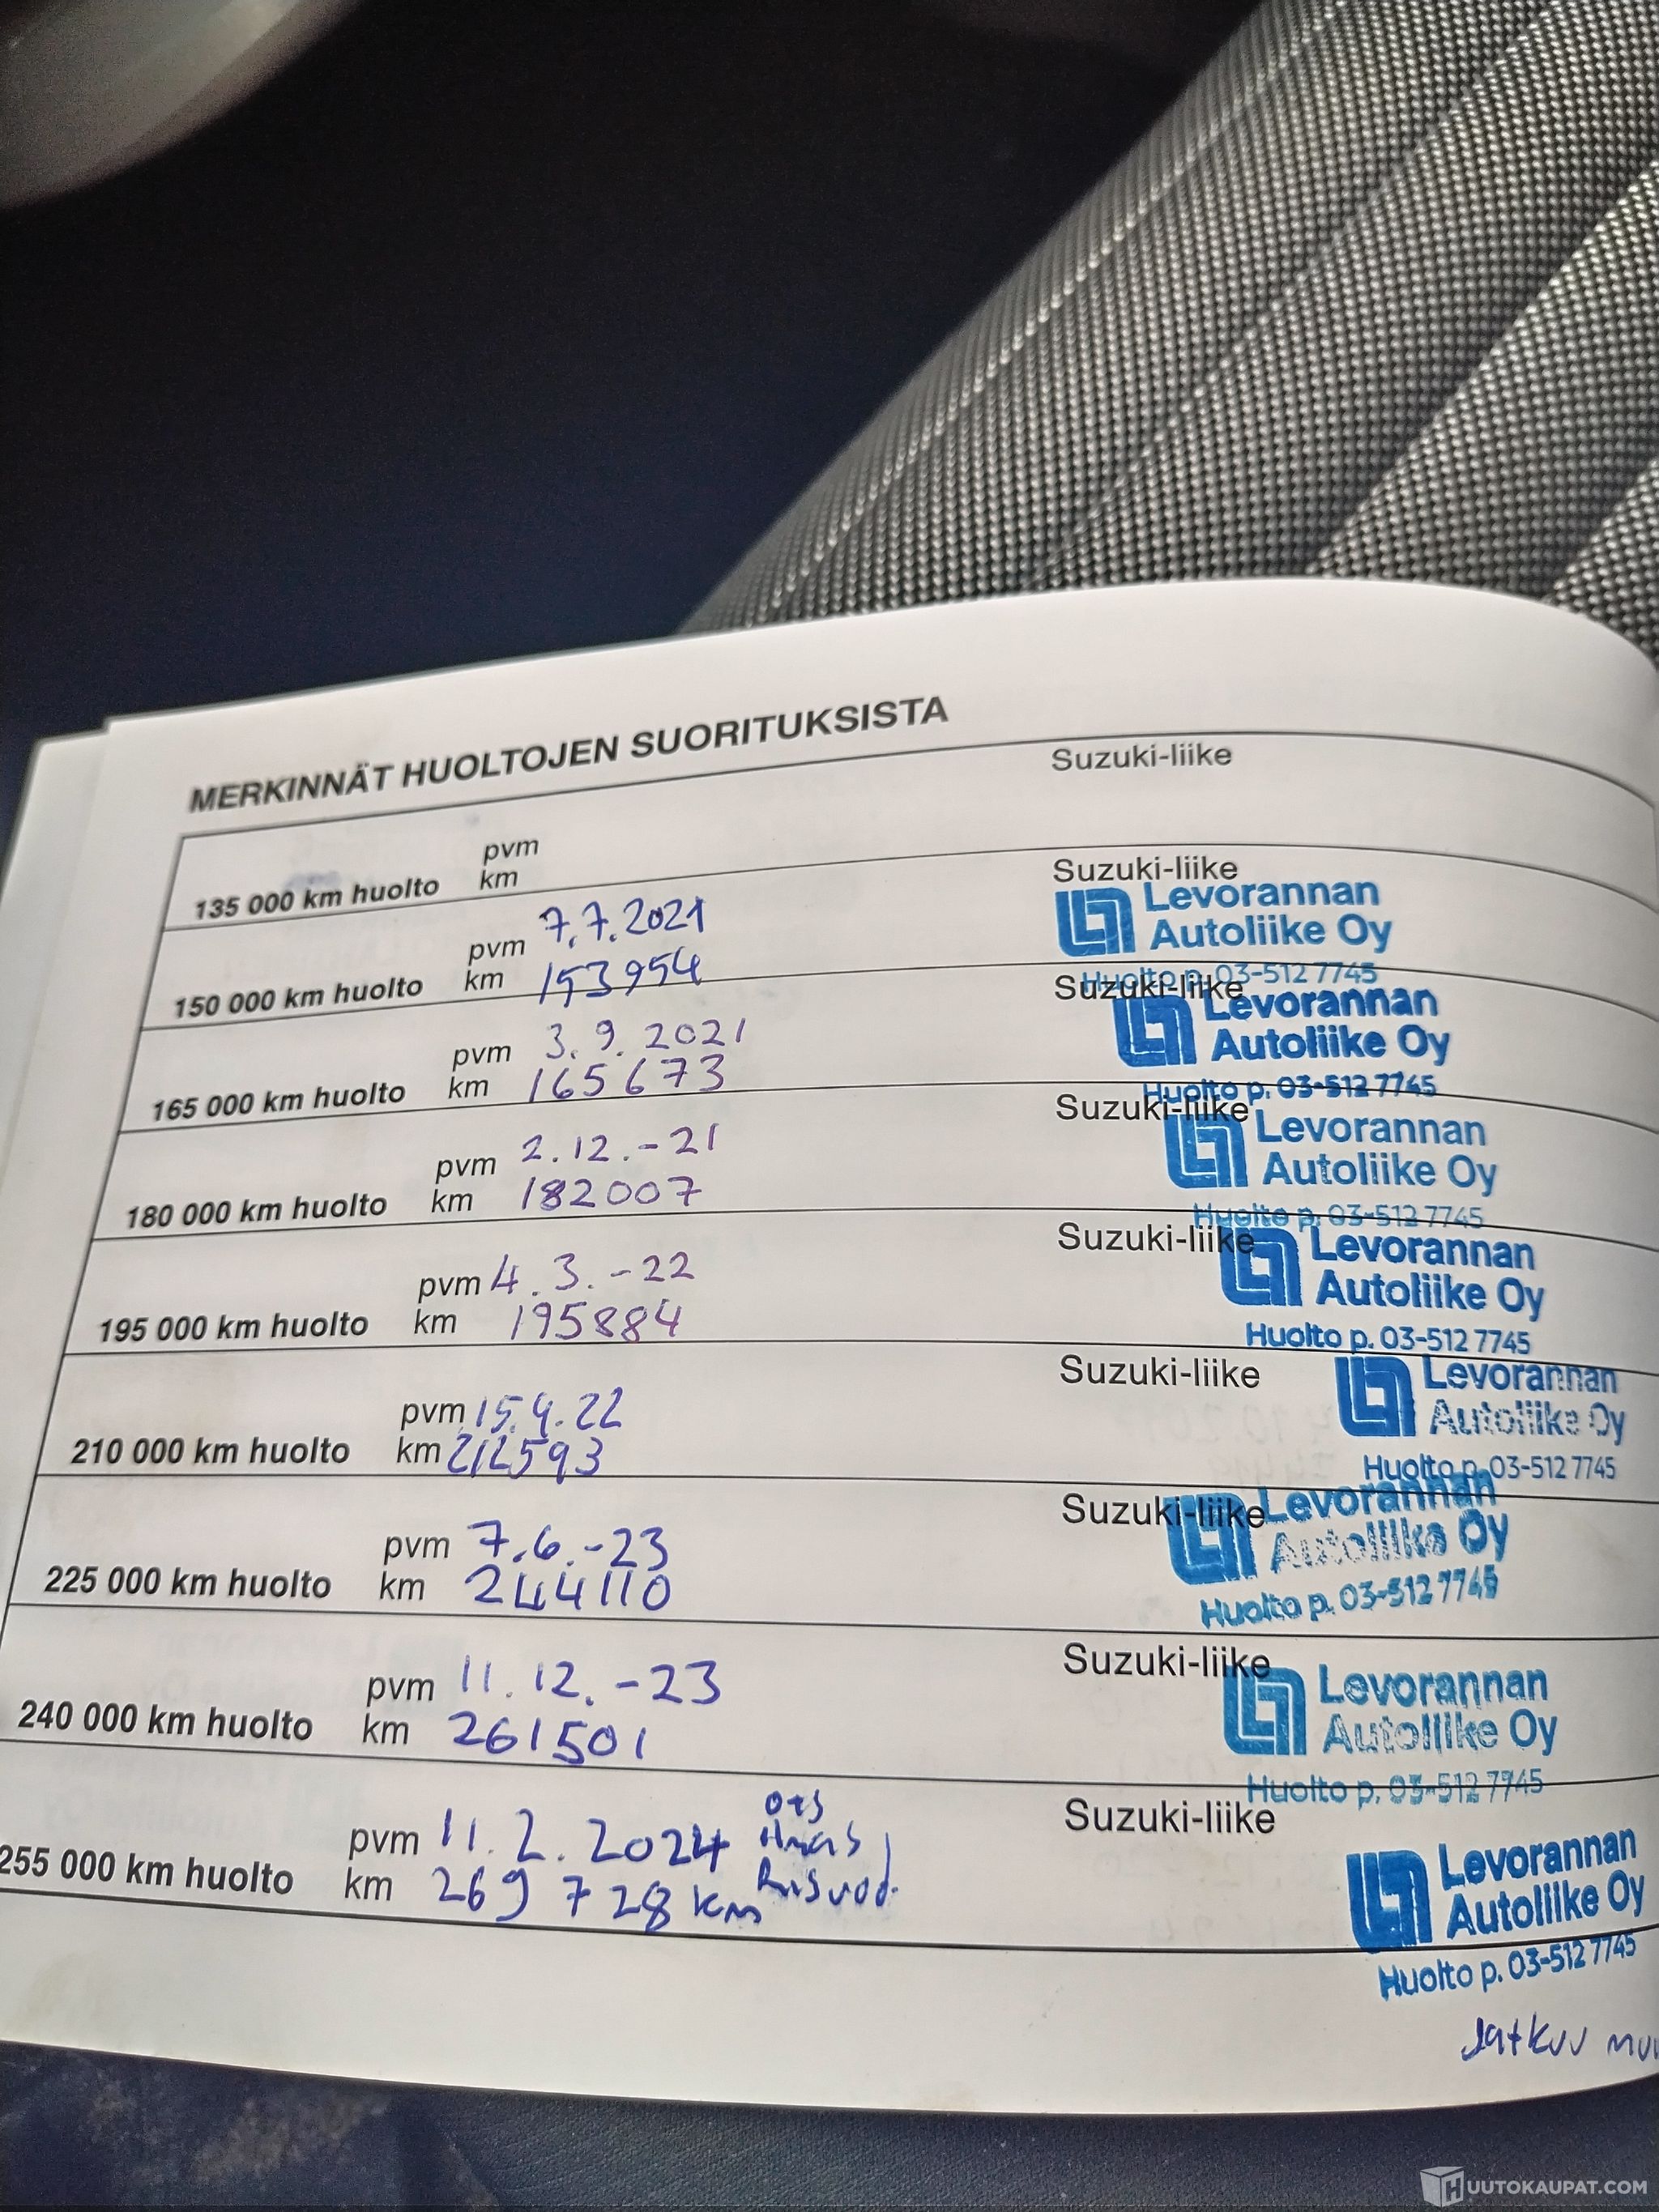 MERKINNÄT HUOLTOJEN SUORITUKSISTA
135 000 km huolto pvm km Suzuki-liike
150 000 km huolto pvm 7.7.2021 Suzuki-liike
km 153954
Levorannan
Autoliike Oy
Huolto p. 03-512 7745
165 000 km huolto pvm 3.9.2021 Suzuki-liike
km 165673
Levorannan
Autoliike Oy
Huolto p. 03-512 7745
180 000 km huolto pvm 2.12.-21 Suzuki-liike
km 182007
Levorannan
Autoliike Oy
Huolto p. 03-512 7745
195 000 km huolto pvm 4.3.-22 Suzuki-liike
km 195884
Levorannan
Autoliike Oy
Huolto p. 03-512 7745
210 000 km huolto pvm Suzuki-liike
km
Levorannan
Autoliike Oy
Huolto p. 03-512 7745
225 000 km huolto pvm 7.6.-23 Suzuki-liike
km 244110
Levorannan
Autoliike Oy
Huolto p. 03-512 7745
240 000 km huolto pvm 11.12.-23 Suzuki-liike
km 261501
Levorannan
Autoliike Oy
Huolto p. 03-512 7745
255 000 km huolto pvm 11.2.2024 Suzuki-liike
km 269 728 km
Levorannan
Autoliike Oy
Huolto p. 03-512 7745
Jatkuu
HUUTOKAUPAT.COM